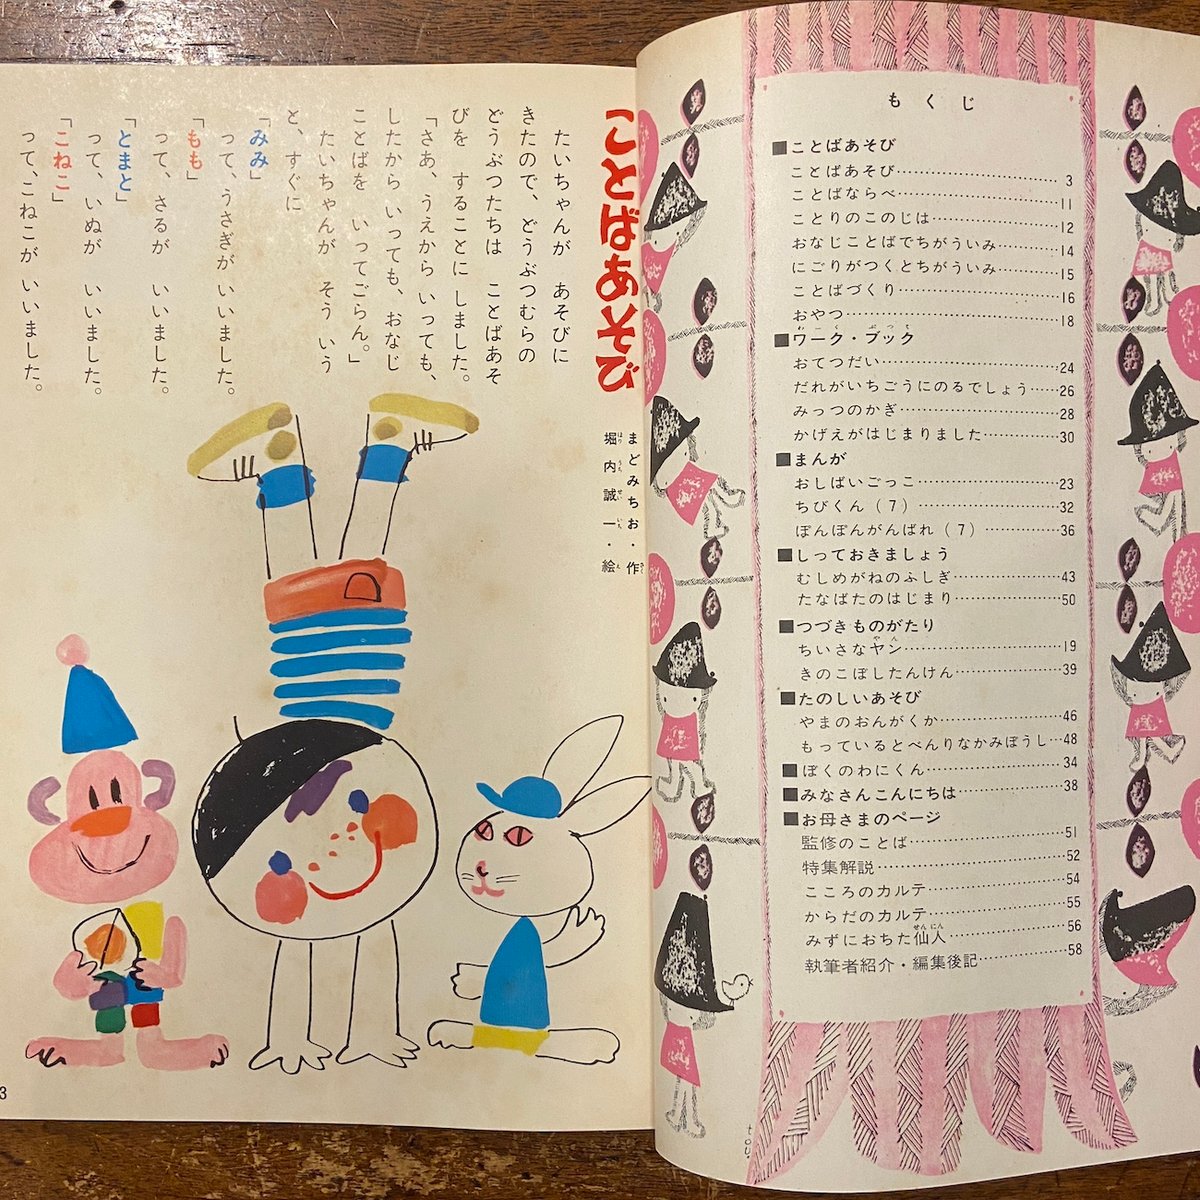 もくじ
■ことばあそび
ことばあそび……3
ことばならべ……11
ことりのこのじは……12
おなじことばでちがういみ……14
にごりがつくとちがういみ……15
ことばづくり……16
おやつ……18
■ワーク・ブック
おてつだい……24
だれがいちごうにのるでしょう……26
みっつのかぎ……28
かげえがはじまりました……30
■まんが
おしばいごっこ……23
ちびくん(7)……32
ぽんぽんがんばれ(7)……36
■しっておきましょう
むしめがねのふしぎ……43
たなばたのはじまり……50
■つづきものがたり
ちいさなヤン……19
きのこぼしたんけん……39
■たのしいあそび
やまのおんがくか……46
もっているとべんりなかみぼうし…48
■ぼくのわにくん……34
■みなさんこんにちは……38
■お母さまのページ
監修のことば……51
特集解説……52
こころのカルテ……54
からだのカルテ……55
みずにおちた仙人……56
執筆者紹介・編集後記……58
tou.
ことばあそび
まどみちお・作
堀内誠一・絵
たいちゃんが あそびに
きたので、どうぶつむらの
どうぶつたちは ことばあそ
びを することに しました。
「さあ、うえから いっても、
したから いっても、おなじ
ことばを いってごらん。」
たいちゃんが そう いう
と、すぐに
「みみ」
って、うさぎが いいました。
「もも」
って、さるが いいました。
「とまと」
って、いぬが いいました。
「こねこ」
って、こねこが いいました。
3